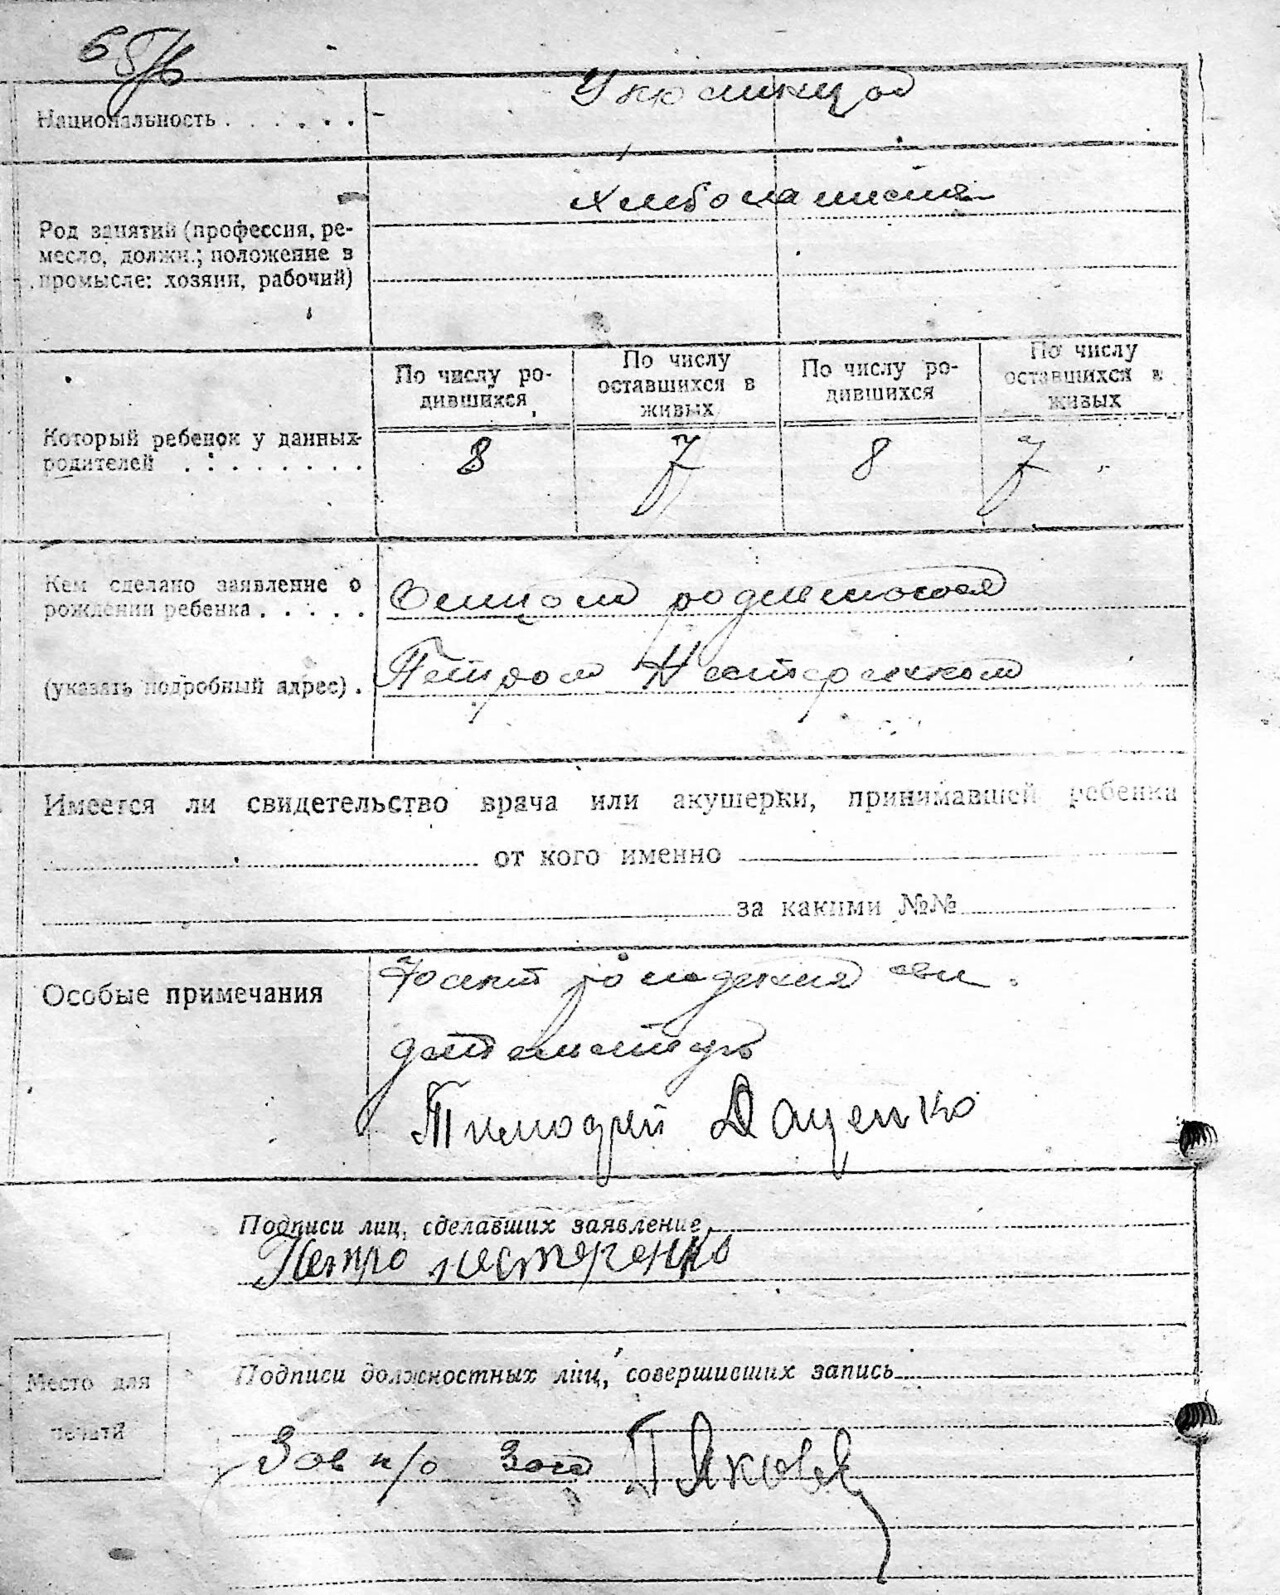 Национальность . . . . . .
Род занятий (профессия, ре-
месло, должн.; положение в
промысле: хозяин, рабочий)
По числу ро-
дившихся
По числу
оставшихся в
живых
По числу ро-
дившихся
По числу
оставшихся в
живых
Который ребенок у данных
родителей . . . . . . . .
8 7 8 7
Кем сделано заявление о
рождении ребенка . . . . .
Отцом
(указать подробный адрес) .
Петром Нестеренком
Имеется ли свидетельство врача или акушерки, принимавшей ребенка
от кого именно
за какими №№
Особые примечания
Факт рождения сви
Тимофей Даценко
Подписи лиц, сделавших заявление
Петро нестеренко
Подписи должностных лиц, совершивших запись
Место для
печати
Зав п/о